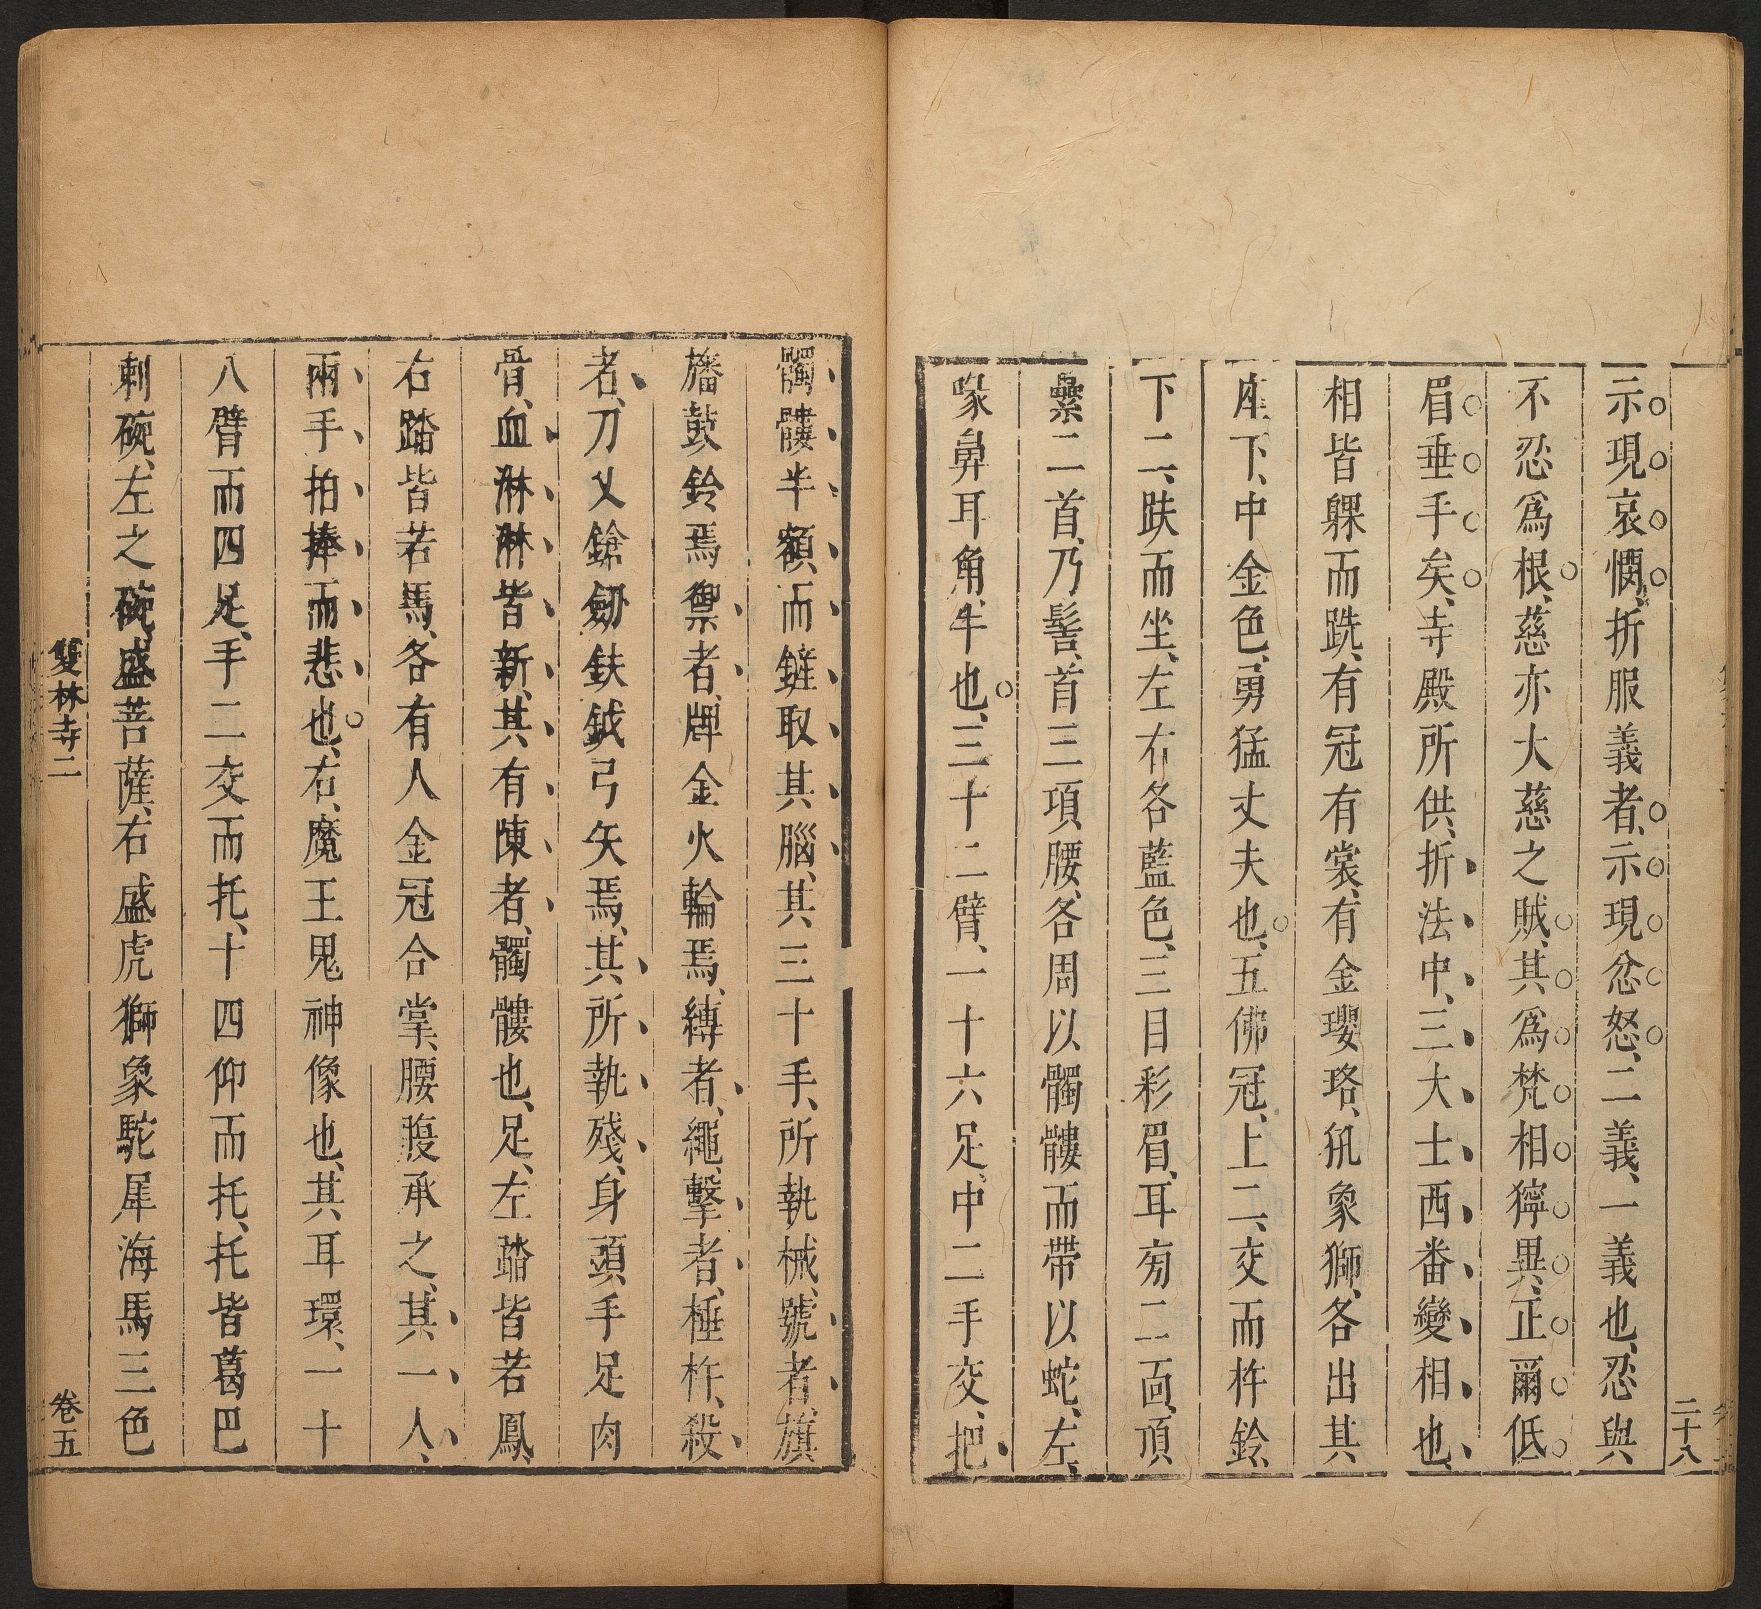 示現哀憫、折服義者、示現忿怒、二義、一義也、忍與
不忍爲根、慈亦大慈之賊、其爲梵相獰異、正爾低
眉垂手矣、寺殿所供、折法中、三大士西番變相也、
相皆躶而跣、有冠有裳、有金瓔珞、犼象獅、各出其
座下、中金色、勇猛丈夫也、五佛冠、上二、交而杵鈴、
下二、趺而坐、左右各藍色、三目彩眉、耳旁二面、頂
纍二首、乃髻、首三項、腰、各周以髑髏而帶以蛇、左、
喙鼻耳角、牛也、三十二臂、一十六足、中二手交、把、
髑髏半額、而鏟取其腦、其三十手、所執械、號者、旗
旛鼓鈴焉、禦者、牌金火輪焉、縛者、繩、擊者、棰杵、殺
者、刀乂鎗劒鈇鉞弓矢焉、其所執殘、身頭手足肉
骨、血淋淋皆新、其有陳者、髑髏也、足、左踏皆若鳳、
右踏皆若馬、各有人金冠合掌、腰腹承之、其一人、
兩手拍捧而悲也、右、魔王鬼神像也、其耳環、一十
八臂而四足、手二交而托、十四仰而托、托皆葛巴
剌碗、左之碗、盛菩薩、右盛虎獅象駝犀海馬三色
雙林寺二
卷五
二十八